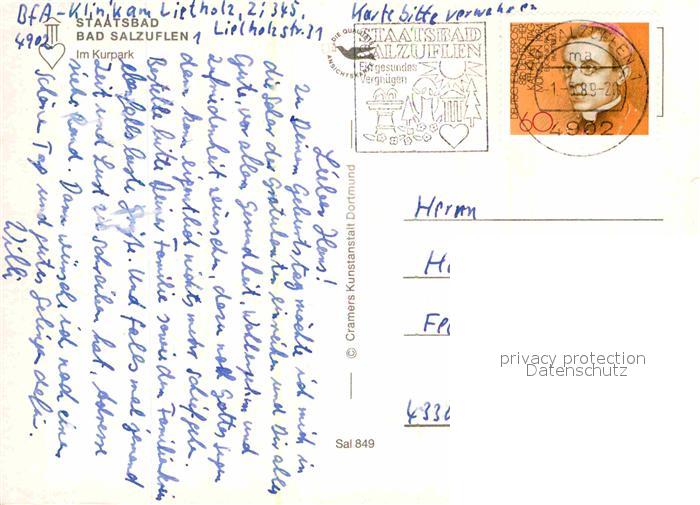 BfA-Klinik am Lietholz, Zi 345,
Lietholzstr. 21
4902
STAATSBAD
BAD SALZUFLEN 1
Im Kurpark
Karte bitte verwahren
DIE QUALITÄTS
ANSICHTSKARTE
STAATSBAD
SALZUFLEN
Ein gesundes
Vergnügen
BAD SALZUFLEN 1
ma
-1.-5.89-20
4902
60
Lieber Hans!
Zu Deinem Geburtstag möchte ich mich in
die Schar der Gratulanten einreihen und Dir alles
Gute, vor allem Gesundheit, Wohlergehen und
Zufriedenheit wünschen, dazu noch Gottes Segen
dann kann eigentlich nichts mehr schiefgehen.
Bestelle bitte Deiner Familie sowie dem Familienkreis
ebenfalls beste Grüße. Und falls mal jemand
Zeit und Lust zu schreiben hat, Adresse
siehe Rand. Dann wünsche ich noch einen
schönen Tag und gutes Gelingen dafür.
Willi
© Cramers Kunstanstalt Dortmund
Sal 849
Herrn
H
Fe
4330
privacy protection
Datenschutz